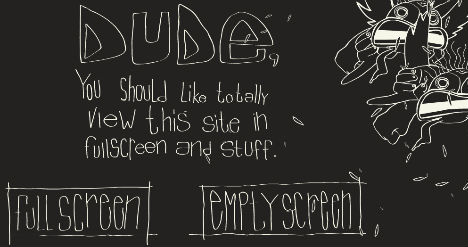 DUDE,
You should like totally
view this site in
fullscreen and stuff.
fullscreen
emptyscreen